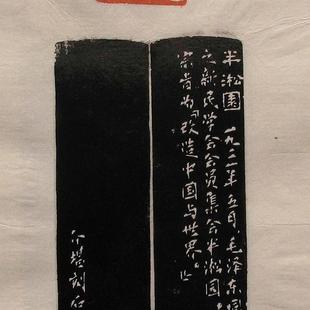 半淞園 一九二一年五月毛泽东同
之新民学会会员集会半淞园
宗旨为“改造中国与世界。”
不堪刻石